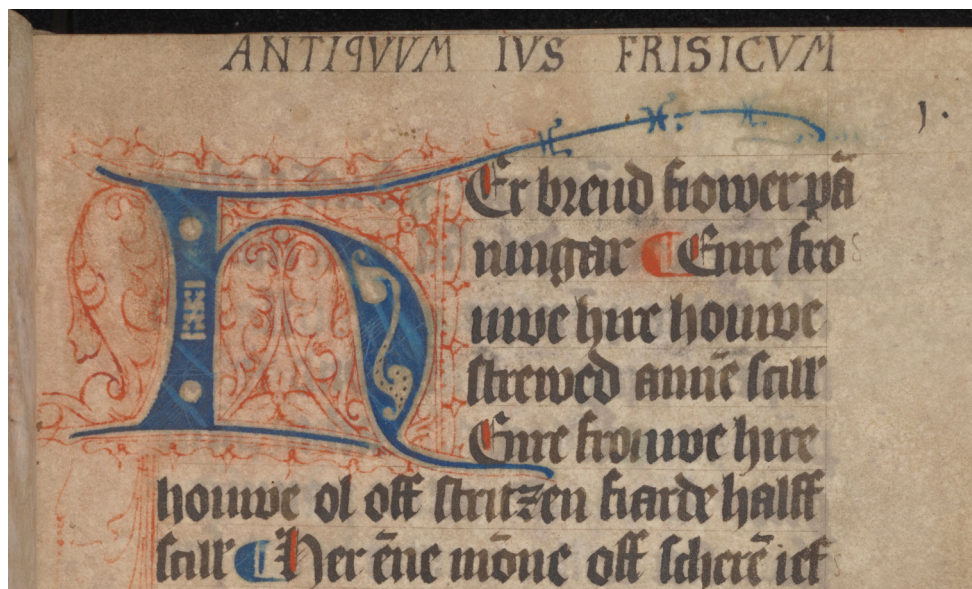 ANTIQVVM IVS FRISICVM
1.
HEr brend frower pā
ningar Enre fro
uwe hire houwe
strewed annē scill'
Enre frouwe hire
houwe ol off stritzen fiarde halff
scill' Her ēne mōne off scherē ief